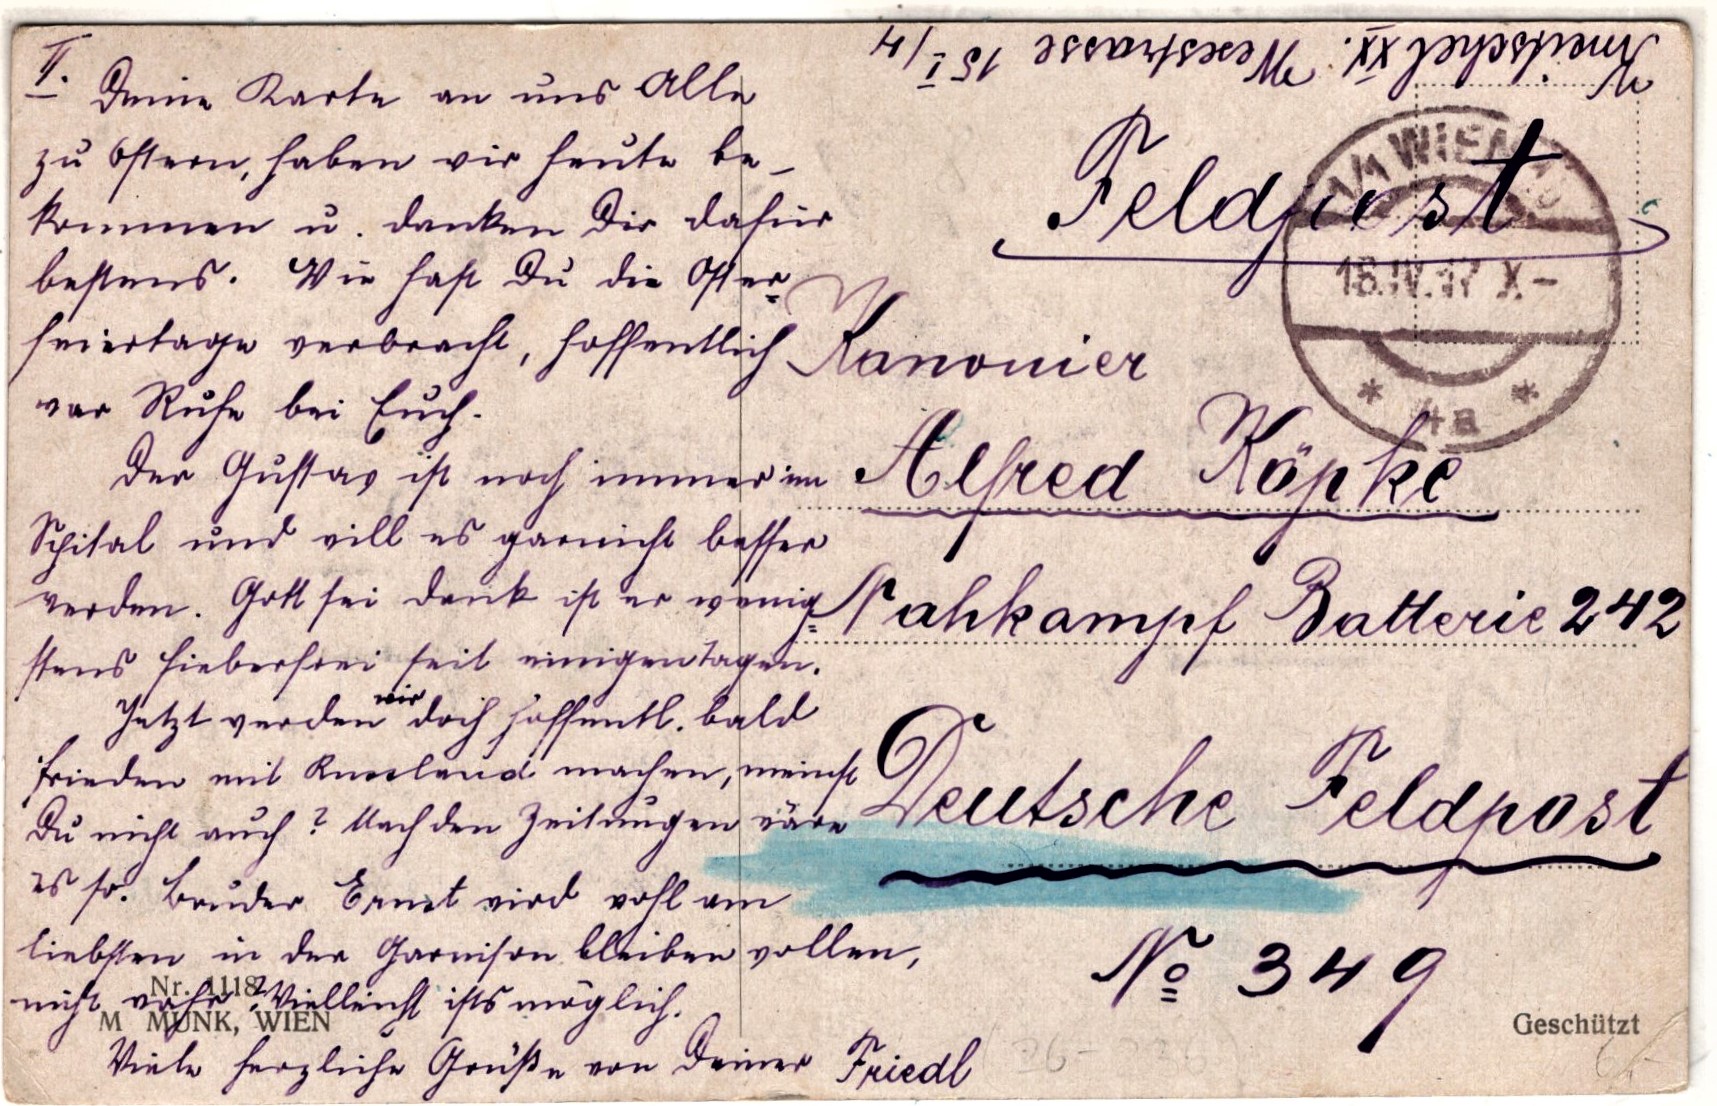 II.
Deine Karte an uns Alle
zu Ostern, haben wir heute be-
kommen u. danken Dir dafür
bestens. Wie hast Du die Oster=
feiertage verbracht, hoffentlich
war Ruhe bei Euch.
Der Gustav ist noch immer im
Spital und will es garnicht besser
werden. Gott sei dank ist er wenig=
stens fieberfrei seit einigen tagen.
Jetzt werden wir doch hoffentl. bald
Frieden mit Russland machen, meinst
Du nicht auch? Nach den Zeitungen wäre
es so. Bruder Ernst wird wohl am
liebsten in der Garnison bleiben wollen,
nicht wahr? Vielleicht ists möglich.
Viele herzliche Grüße von Deiner Friedl
Kneitschel XX. Wexstrasse 15 I/4
Feldpost
Kanonier
Alfred Köpke
Nahkampf Batterie 242
Deutsche Feldpost
No 349
WIEN
18.IV.17 X-
* 4a *
Nr. 1118
M MUNK, WIEN
Geschützt